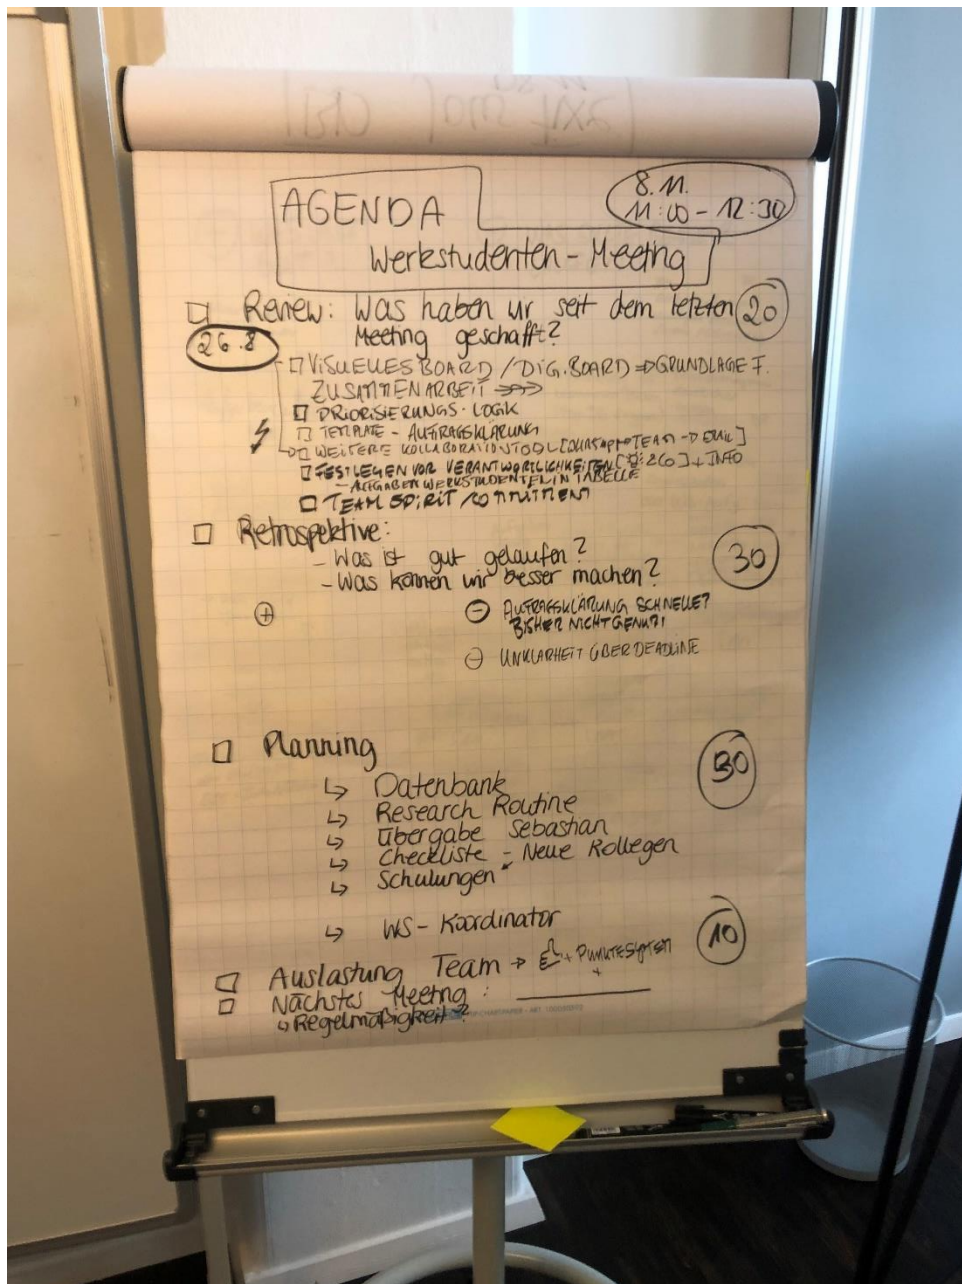 AGENDA
Werkstudenten-Meeting
8.11.
11:00 - 12:30
Review: Was haben wir seit dem letzten
Meeting geschafft?
20
26.8
VISUELLES BOARD / DIG. BOARD => GRUNDLAGE F.
ZUSAMMENARBEIT
PRIORISIERUNGS-LOGIK
TEMPLATE - AUFTRAGSKLÄRUNG
WEITERE KOLLABORATIONSTOOL [WHATSAPP TEAM -> EMAIL]
FESTLEGEN VON VERANTWORTLICHKEITEN + INFO
- AUFGABEN WERKSTUDENTEN IN TABELLE
TEAM SPIRIT / COMMITMENT
Retrospektive:
- Was ist gut gelaufen?
- Was können wir besser machen?
30
+
- AUFTRAGSKLÄRUNG
BISHER NICHT
- UNKLARHEIT ÜBER DEADLINE
Planning
30
↳ Datenbank
↳ Research Routine
↳ Übergabe Sebastian
↳ Checkliste - Neue Kollegen
↳ Schulungen
↳ WS - Koordinator
10
Auslastung Team → + PUNKTESYSTEM
+
Nächstes Meeting :
↳ Regelmäßigkeit?